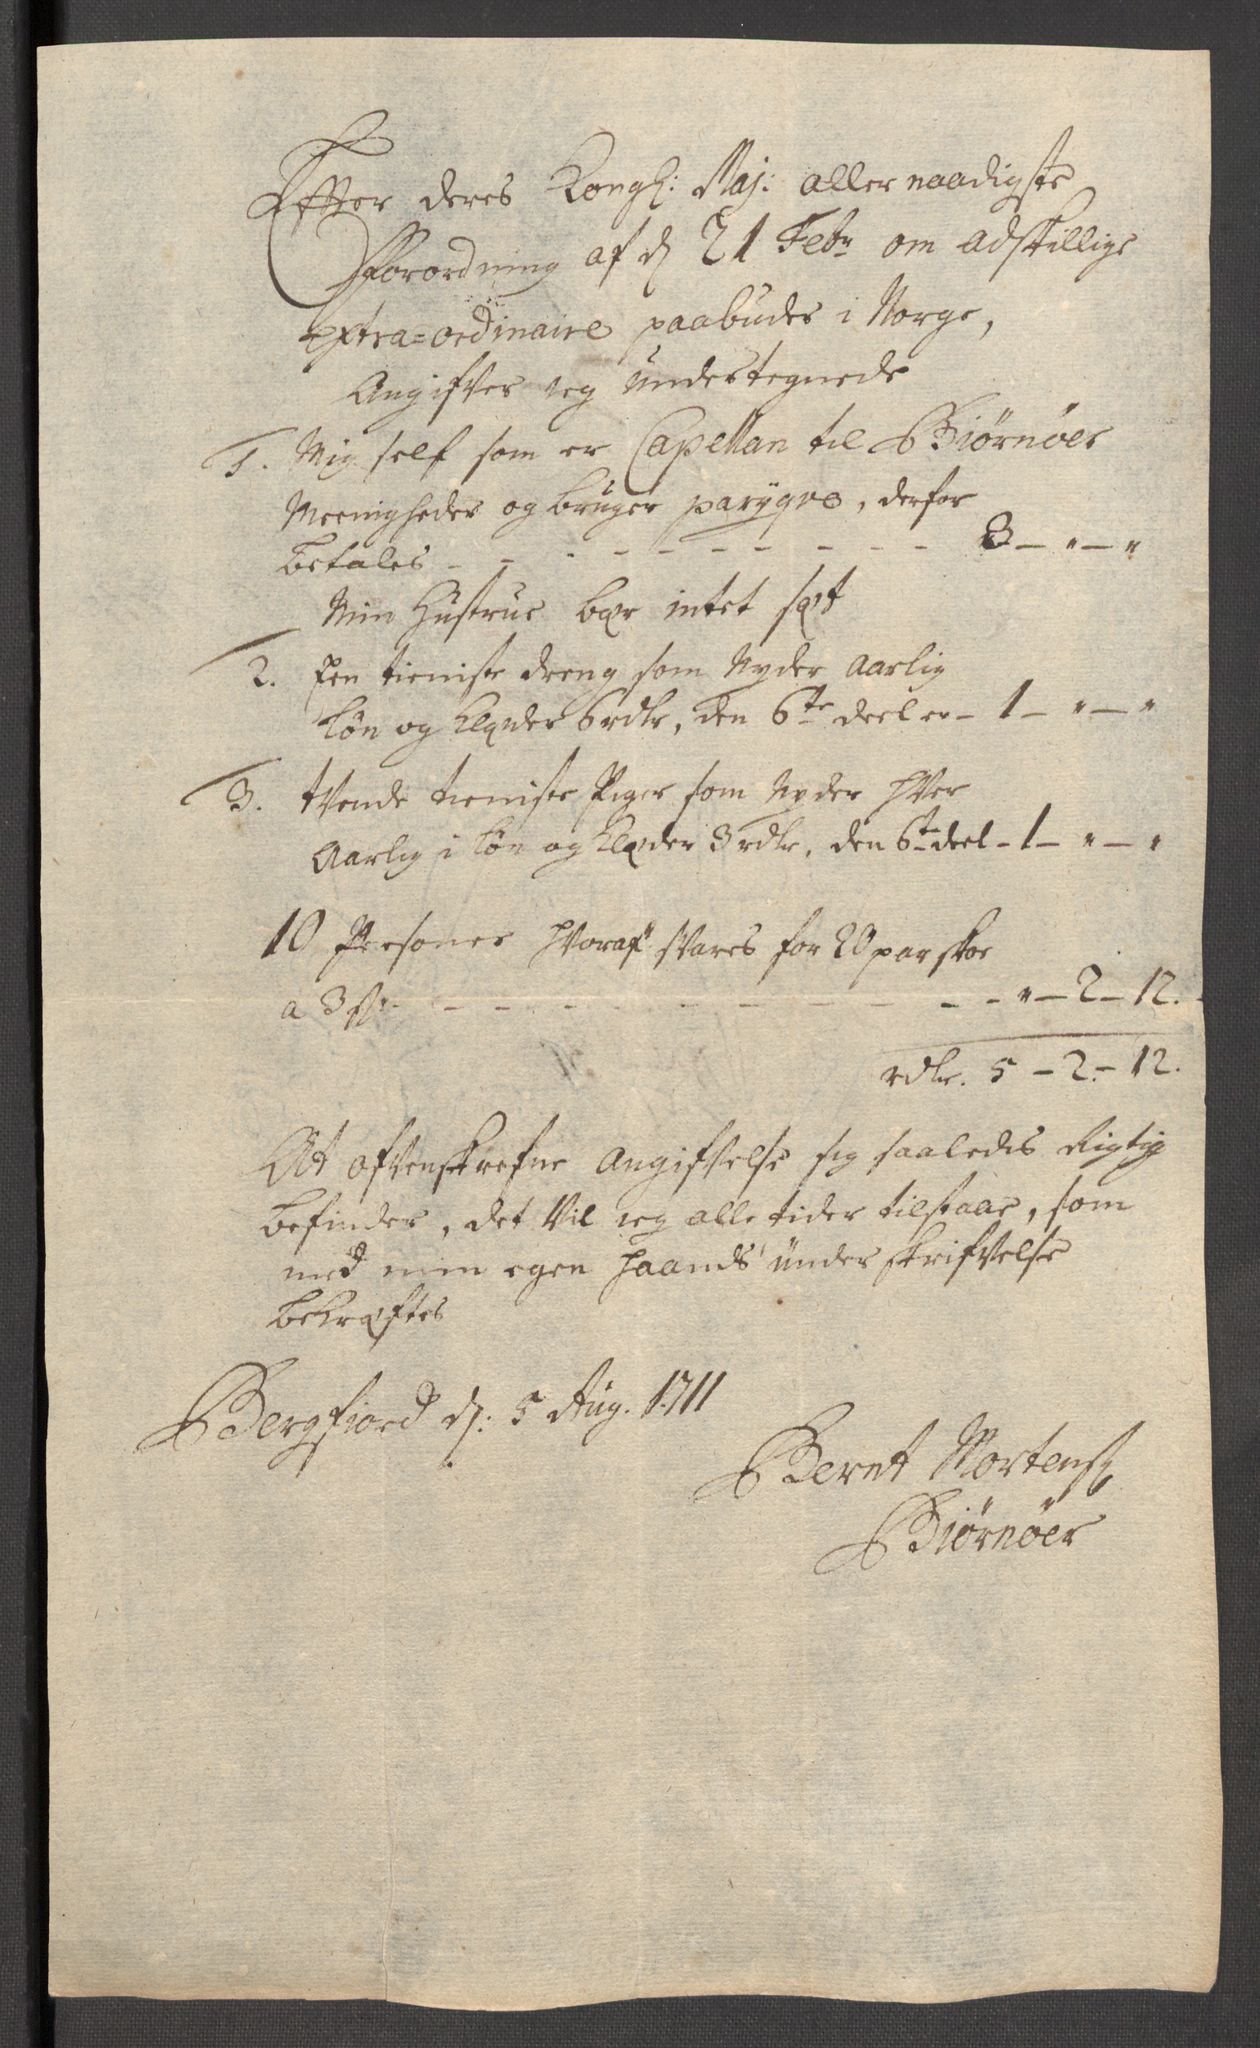 Effter deres Kongl: Maj: aller naadigste
Fforordning af d 21 Febr om adskillige
extra=ordinaire paabuder i Norge,
Angifver ieg undertegnede
1. Mig self som er Capellan til Biørnøer
Meenigheder og bruger parÿqve, derfor
betales - - - - - - - - - - - 3 - " - "
Min Hustrue bær intet sæt
2. Een tieniste dreng som Nyder Aarlig
Løn og Klæder 6 rdlr, den 6te deel er - 1 - " - "
3. tvende tieniste Piger som Nyder hver
Aarlig i Løn og Klæder 3 rdlr, den 6te deel - 1 - " - "
10 Personer hvoraf svares for 20 par skoe
a 3 s: - - - - - - - - - - - " - 2 - 12.
rdlr. 5 - 2 - 12.
At ofvenskrefne Angifvelse sig saaledis Rigtig
befinder, det vil ieg alle tider tilstaae, som
med min egen haands underskrifvelse
bekræftes
Bergfiord d: 5 Aug. 1711
Bernt Mortens
Biørnöer